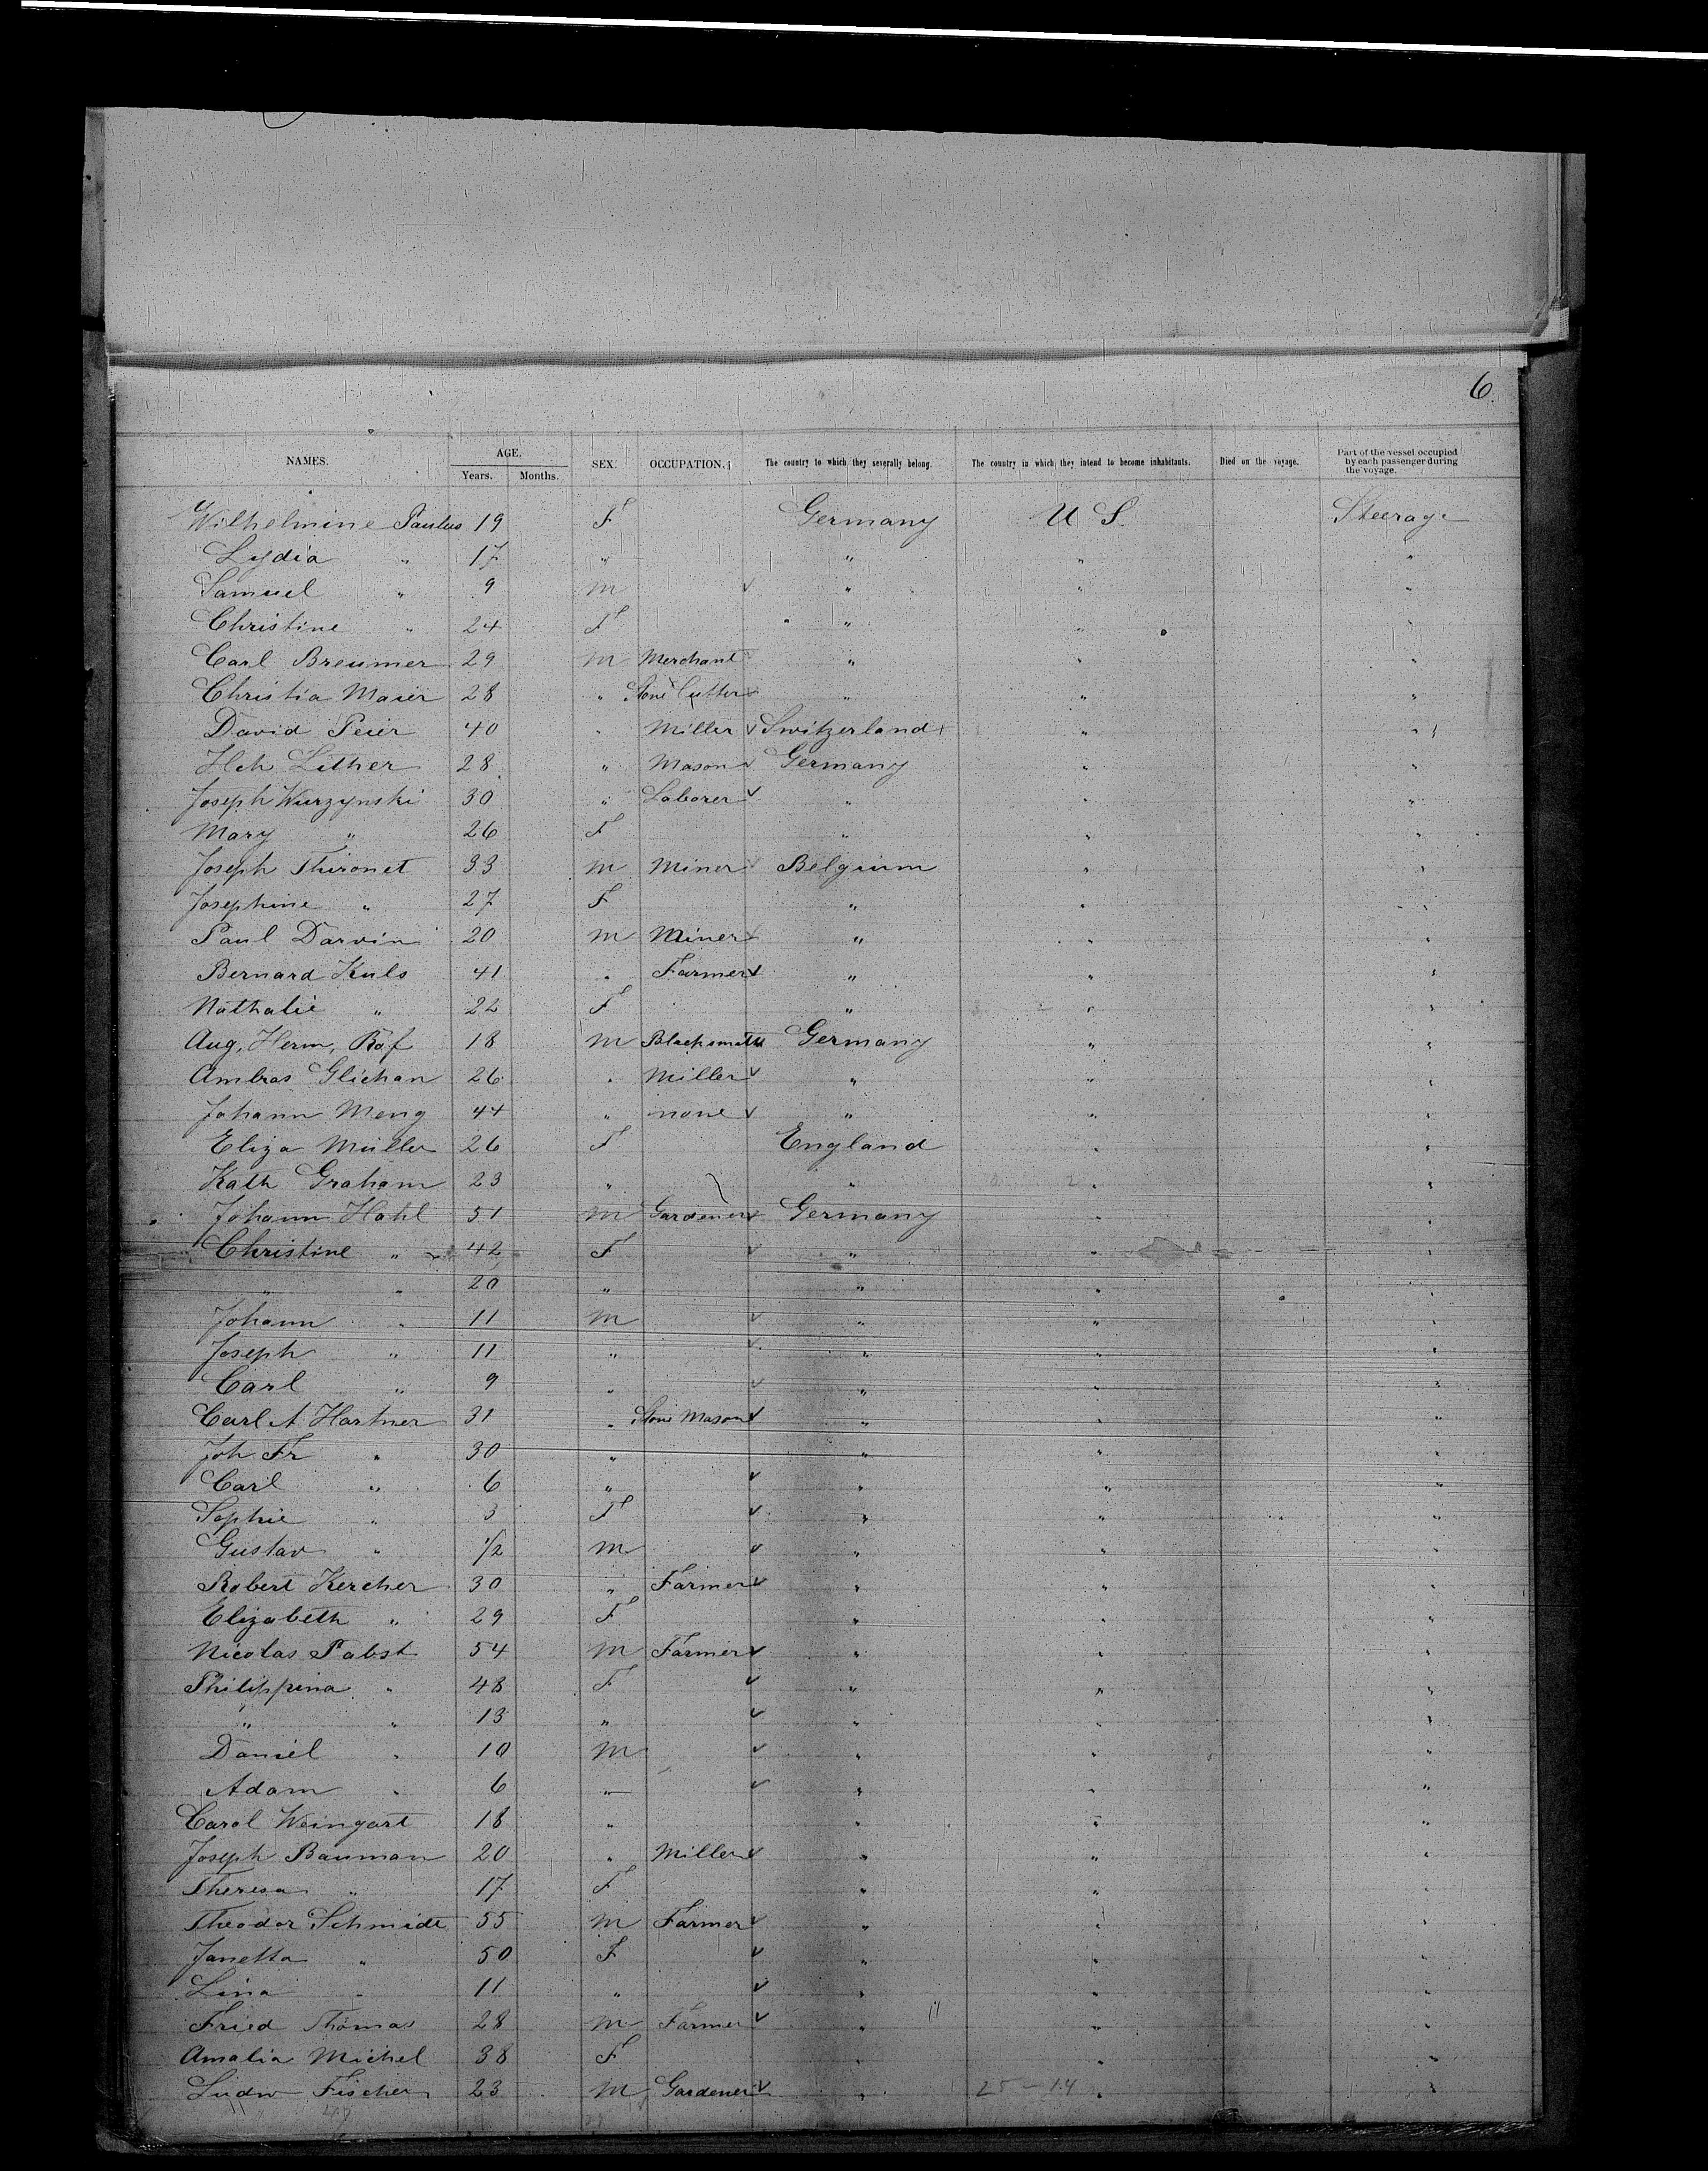 6.
NAMES. AGE. Years. Months. SEX. OCCUPATION. The country to which they severally belong. The country in which they intend to become inhabitants. Died on the voyage. Part of the vessel occupied by each passenger during the voyage.
Wilhelmine Paulus 19 F Germany U S. Steerage
Lydia " 17 " " " "
Samuel " 9 m " " "
Christine " 24 F " " "
Carl Breumer 29 m Merchant " " "
Christia Maier 28 " Stone Cutter " " "
David Peier 40 " Miller Switzerland " "
Hch Lither 28 " Mason Germany " "
Joseph Wurzynski 30 " Laborer " " "
Mary " 26 F " " "
Joseph Thironet 33 m Miner Belgium " "
Josephine " 27 F " " "
Paul Darvin 20 m Miner " " "
Bernard Kuls 41 " Farmer " " "
Nathalie " 22 F " " "
Aug. Herm. 18 m Blacksmith Germany " "
Ambros Glichan 26 " Miller " " "
Johann Meng 44 " none " " "
Eliza Müller 26 F England " "
Kath Graham 23 " " " "
Johann Hahl 51 m Gardener Germany " "
Christine " 42 F " " "
" " 20 " " " "
Johann " 11 m " " "
Joseph " 11 " " " "
Carl " 9 " " " "
Carl A Hartner 31 " Stone Mason " " "
Joh Fr " 30 " " " "
Carl " 6 " " " "
Sophie " 3 F " " "
Gustav " 1/2 m " " "
Robert Kercher 30 " Farmer " " "
Elizabeth " 29 F " " "
Nicolas Pabst 54 m Farmer " " "
Philippina " 48 F " " "
" " 13 " " " "
Daniel " 10 m " " "
Adam " 6 " " " "
Carol Weingart 18 " " " "
Joseph Bauman 20 " Miller " " "
Theresa " 17 F " " "
Theodor Schmidt 55 m Farmer " " "
Janetta " 50 F " " "
Lina " 11 " " " "
Fried Thomas 28 m Farmer " " "
Amalia Michel 38 F " " "
Ludw Fischer 23 m Gardener " 25-14 " "